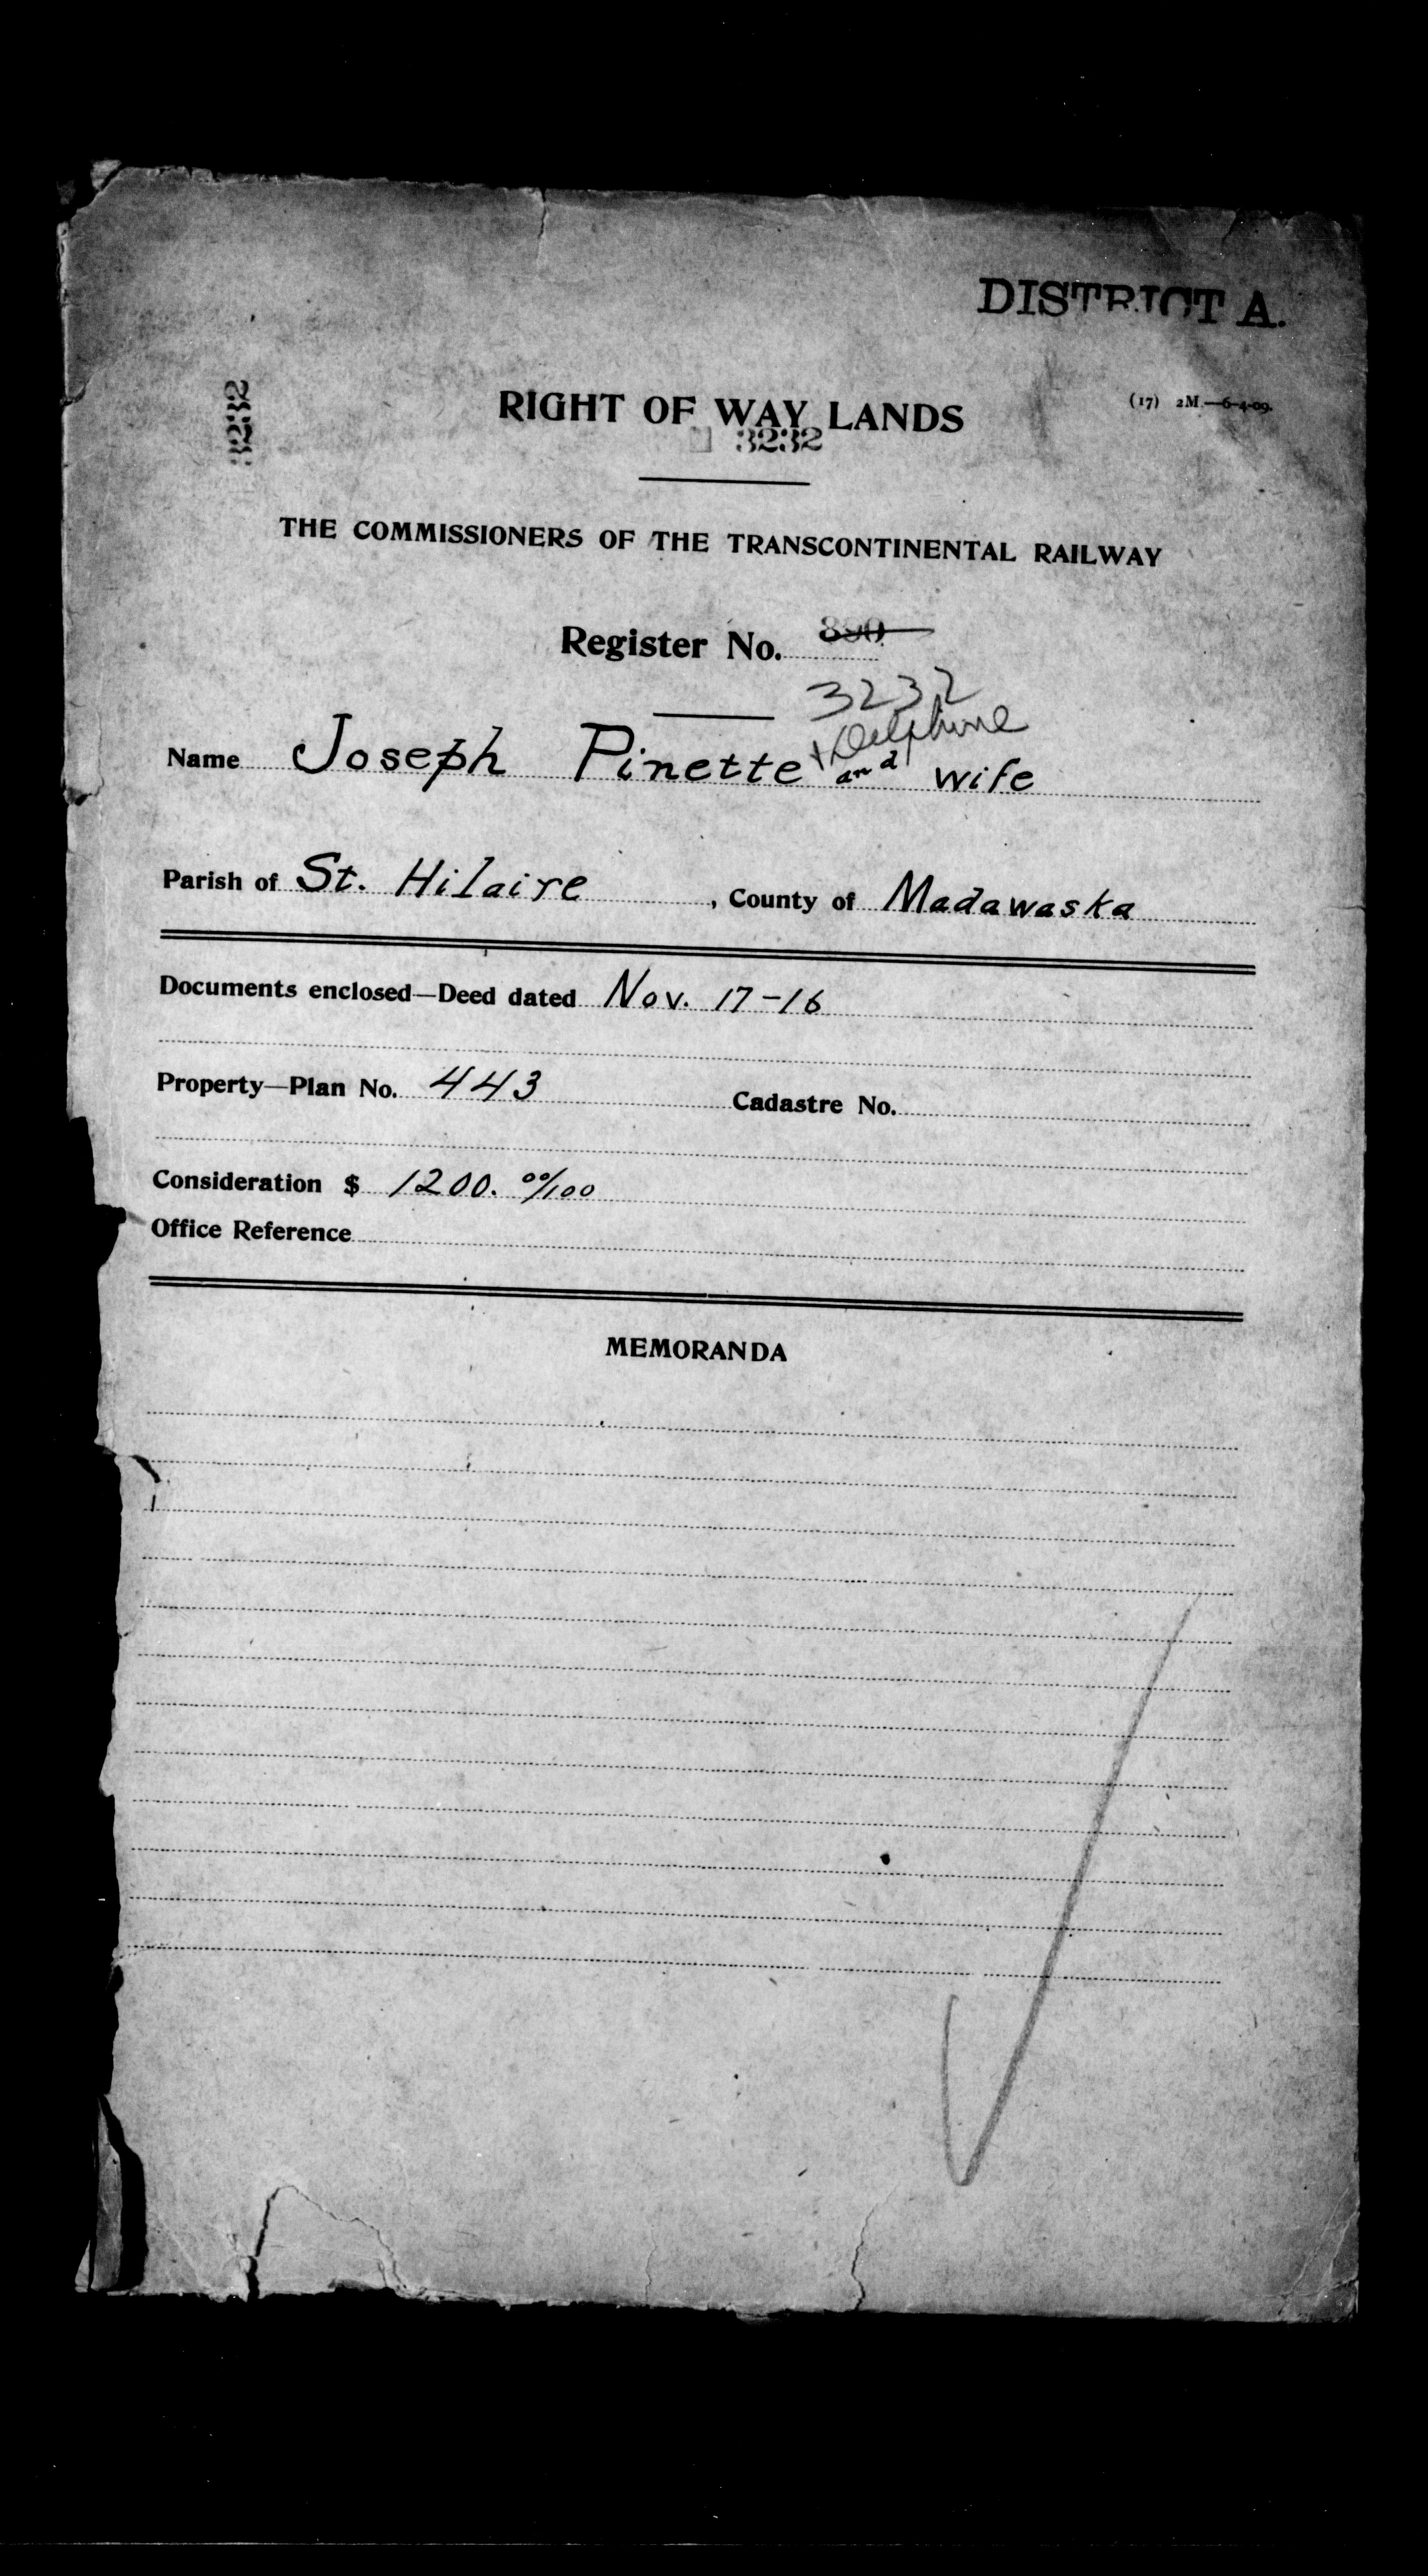 DISTRICT A.
3232
RIGHT OF WAY LANDS
(17) 2M.—6-4-09.
3232
THE COMMISSIONERS OF THE TRANSCONTINENTAL RAILWAY
Register No. 890
3232
+ Delphine
Name Joseph Pinette and wife
Parish of St. Hilaire , County of Madawaska
Documents enclosed—Deed dated Nov. 17-16
Property—Plan No. 443 Cadastre No.
Consideration $ 1200. 00/100
Office Reference
MEMORANDA